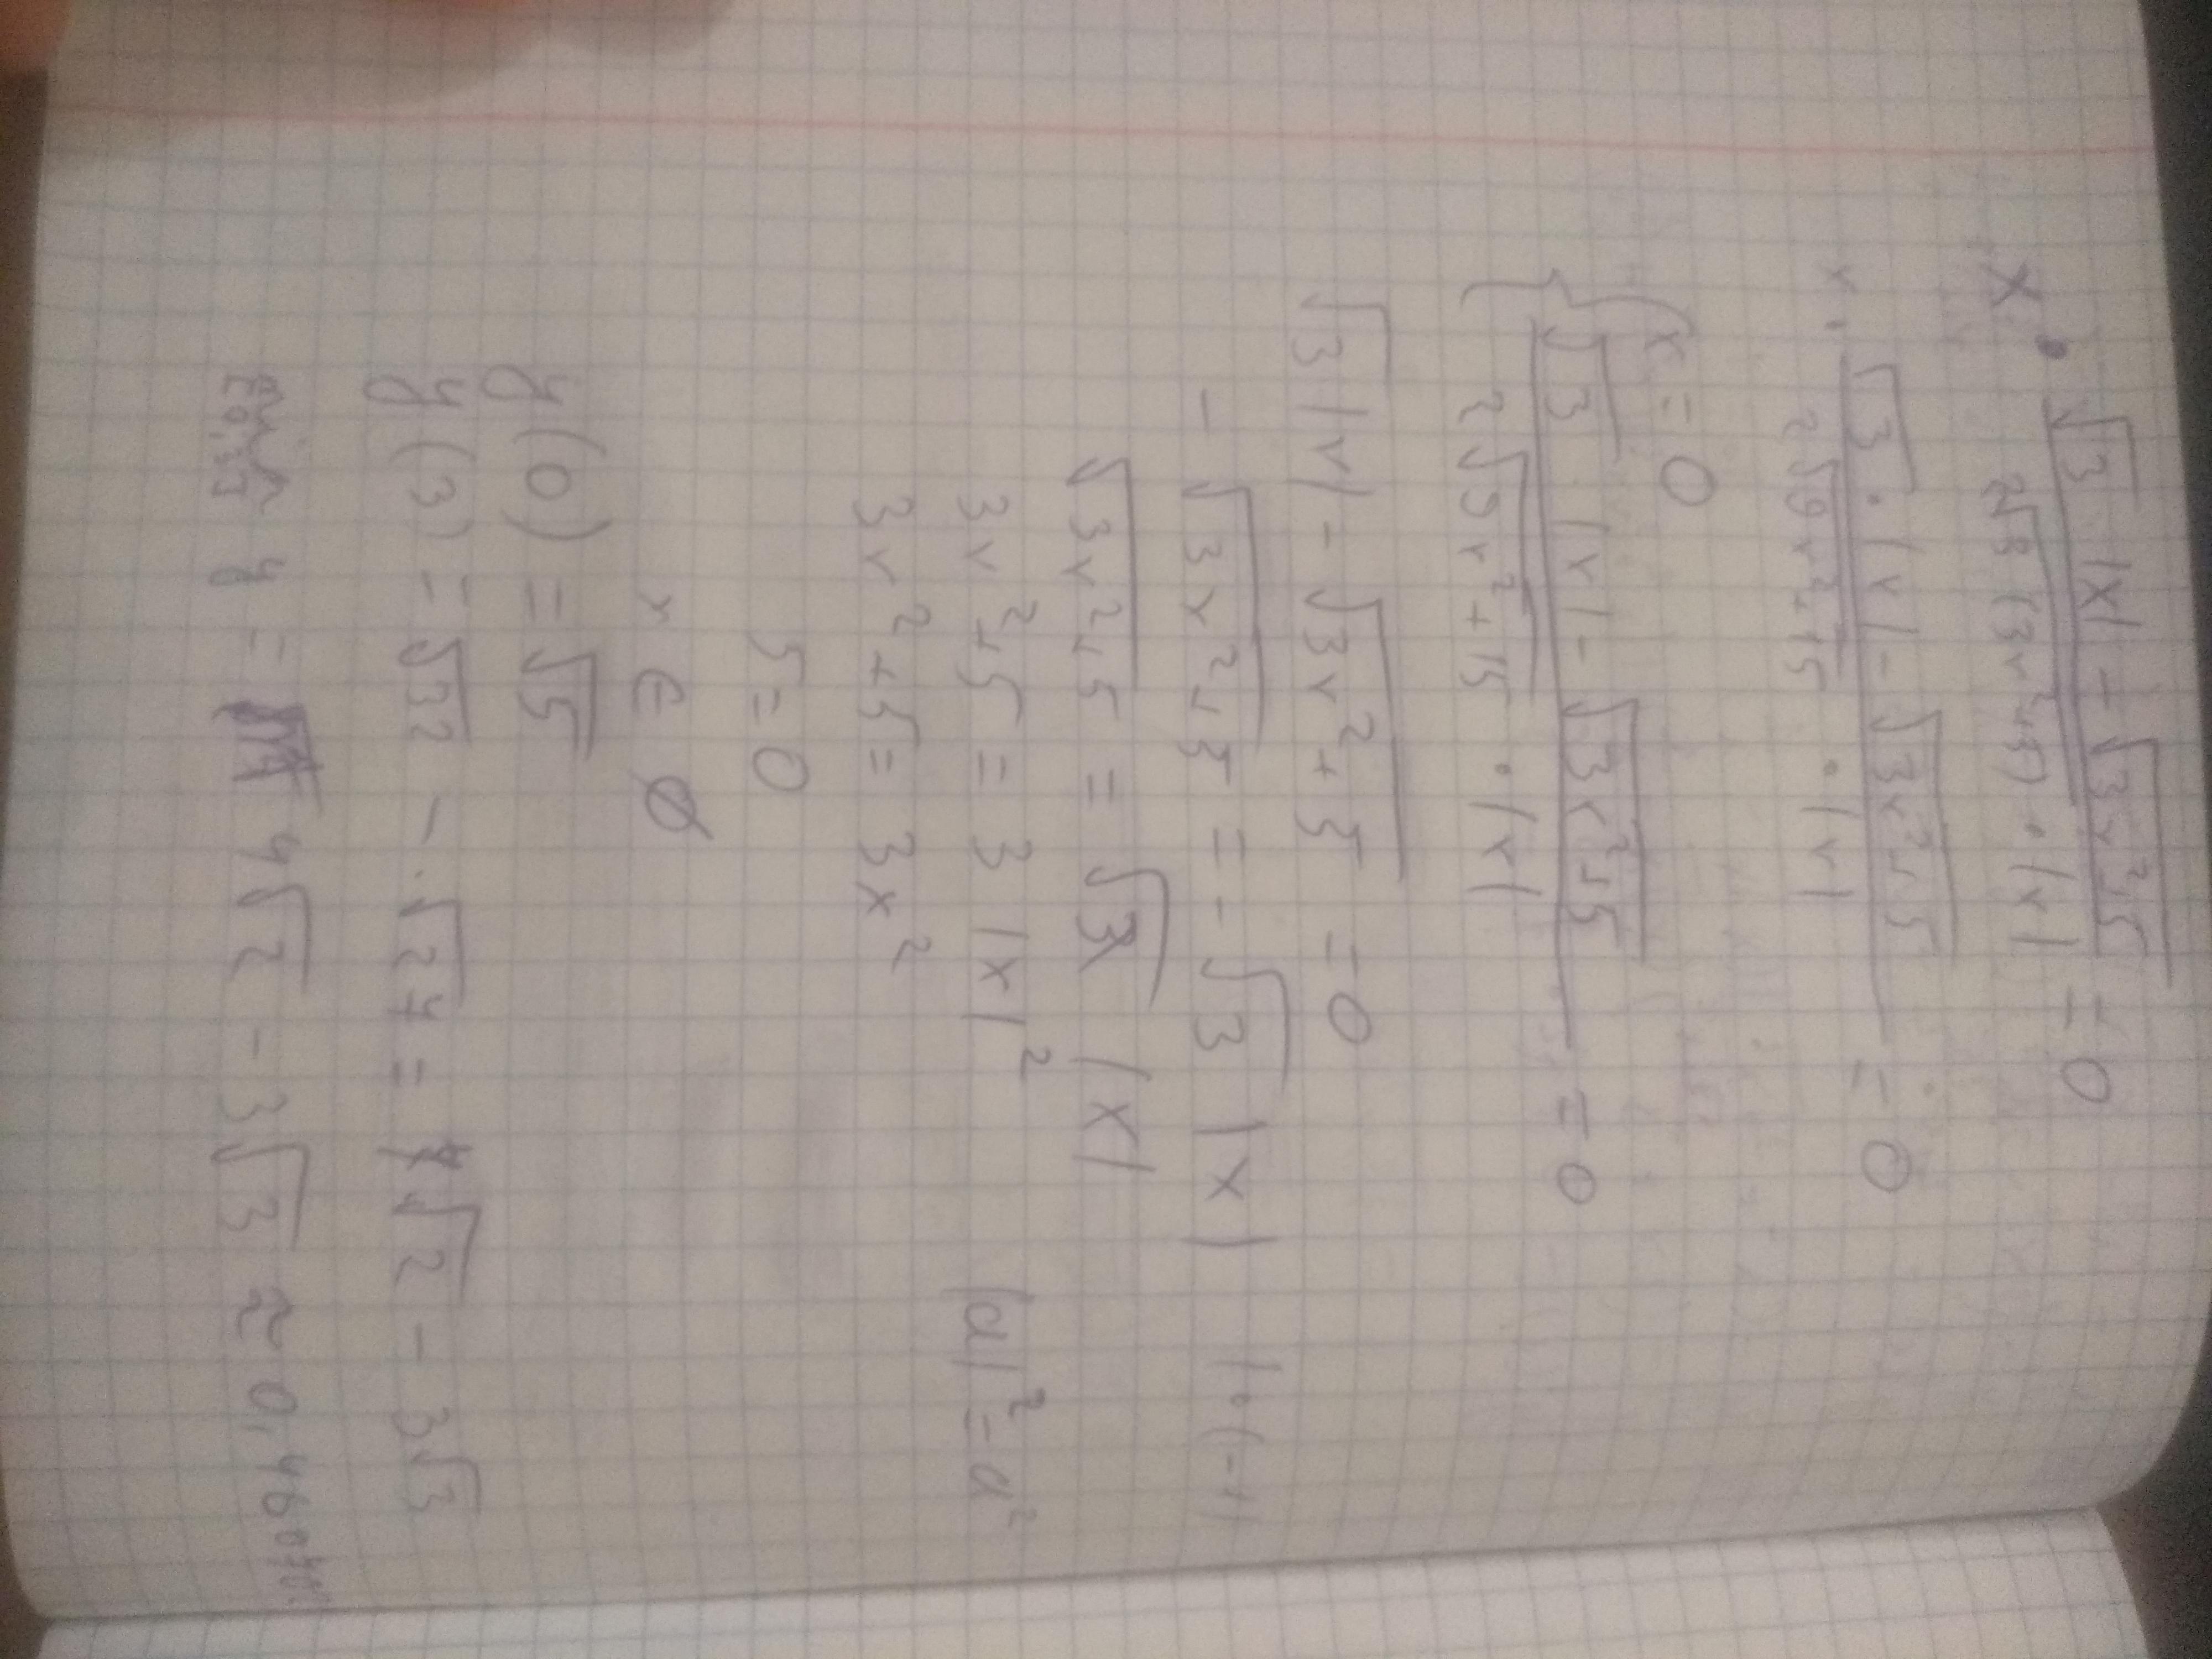 x · (√3 · |x| - √(3x²+5)) / (2√(3(3x²+5)) · |x|) = 0
x · (√3 · |x| - √(3x²+5)) / (2√(9x²+15) · |x|) = 0
{ x = 0
{ (√3 · |x| - √(3x²+5)) / (2√(9x²+15) · |x|) = 0
√3 |x| - √(3x²+5) = 0
- √(3x²+5) = - √3 |x| | · (-1)
√(3x²+5) = √3 |x|
3x²+5 = 3 |x|² |a|² = a²
3x²+5 = 3x²
5 = 0
x ∈ ∅
y(0) = √5
y(3) = √32 - √27 = 4√2 - 3√3
[0,3] y = 4√2 - 3√3 ≈ 0,4607